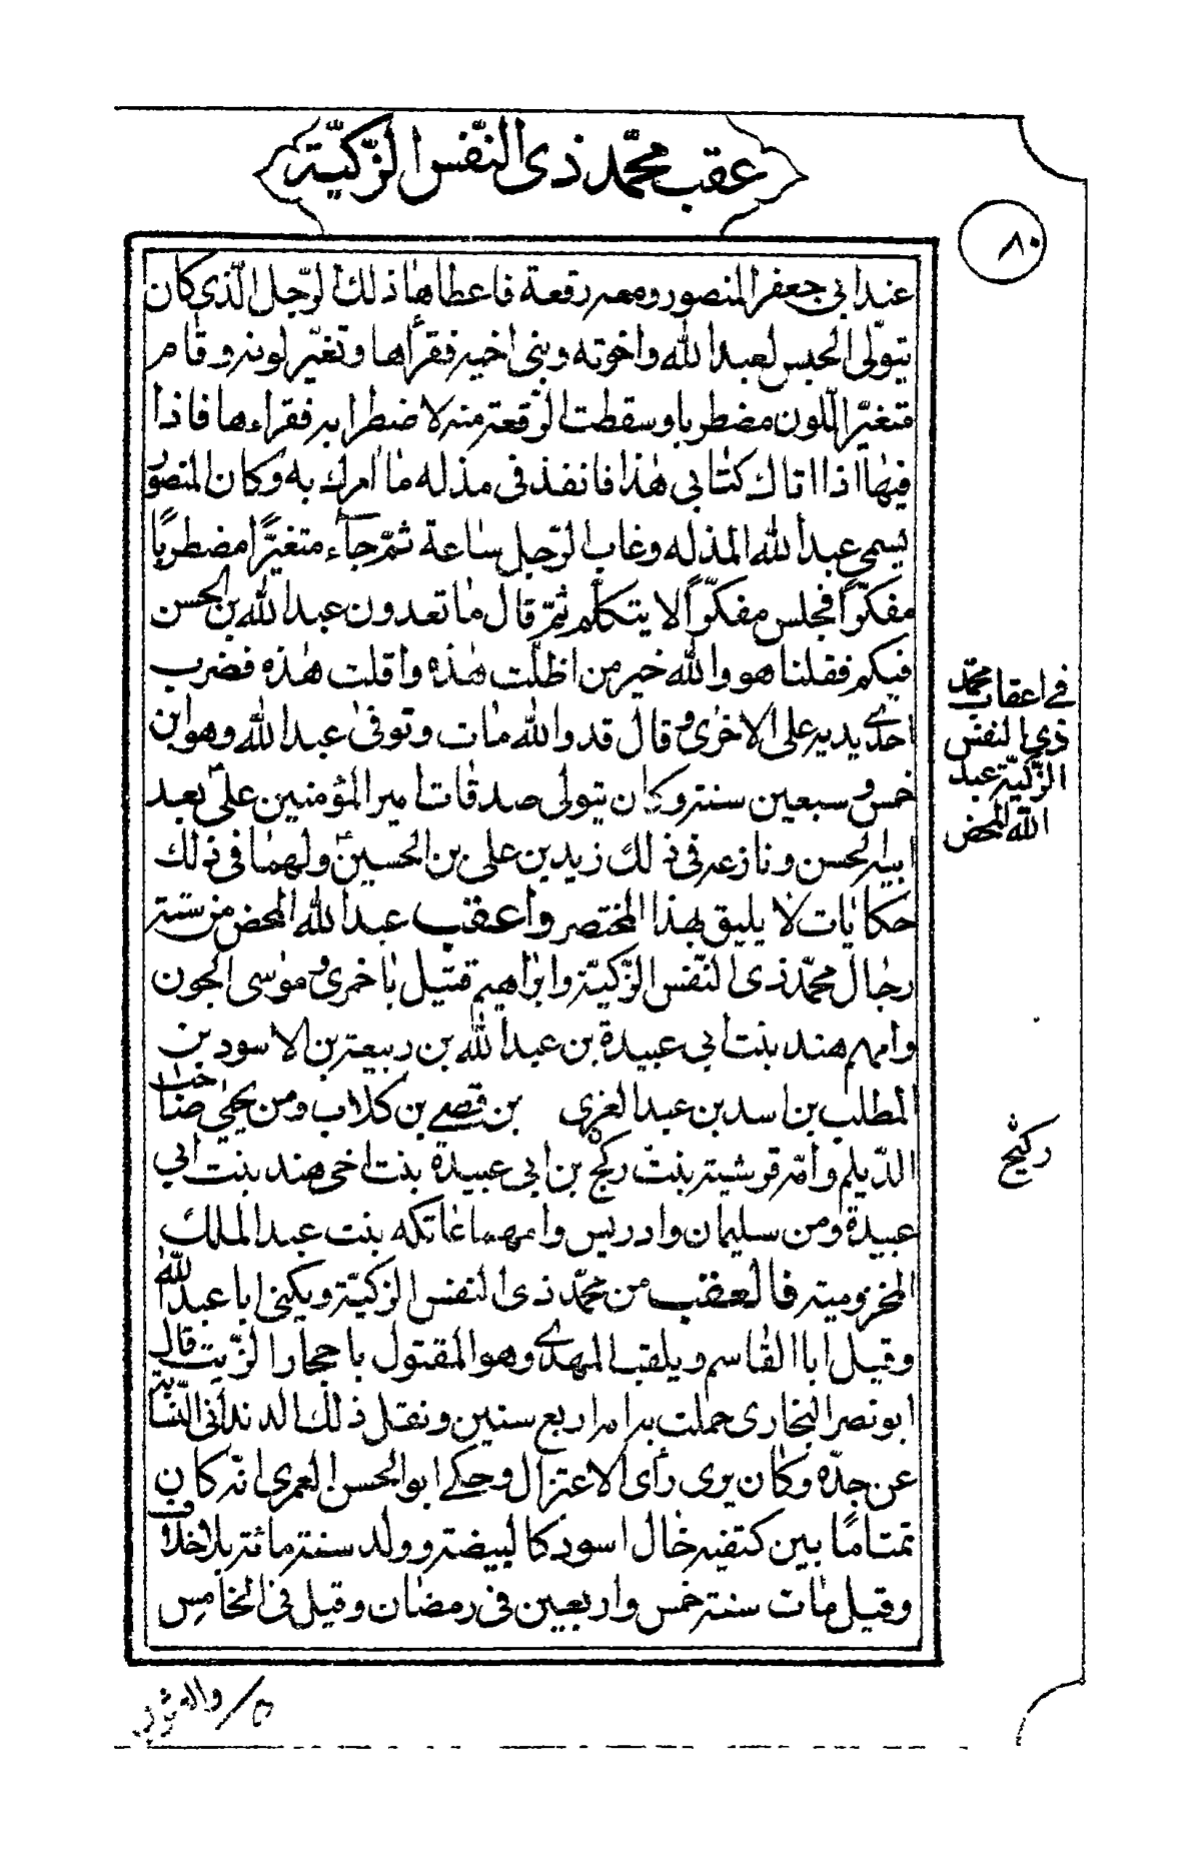 عقب محمّد ذى النّفس الزّكيّة
٨٠
عند ابى جعفر المنصور ومعه رقعة فاعطاها ذلك الرّجل الّذى كان
يتولّى الحبس لعبد الله واخوته وبنى اخيه فقرأها وتغيّر لونه وقام
متغيّر اللّون مضطربا وسقطت الرّقعة منه لاضطرابه فقراءها فاذا
فيها اذا اتاك كتابى هذا فانفذ فى مذله ما آمرك به وكان المنصور
يسمى عبد الله المذله وغاب الرّجل ساعة ثمّ جآء متغيّرًا مضطربًا
مفكّرًا فجلس مفكّرًا لا يتكلّم ثمّ قال ما تعدون عبد الله بن الحسن
فيكم فقلنا هو والله خير من اظلّت هذه واقلت هذه فضرب
احدى يديه على الاخرى وقال قد والله مات وتوفى عبد الله وهو ابن
خمس وسبعين سنة وكان يتولى صدقات امير المؤمنين علىّ بعد
ابيه الحسن ونازعه فى ذلك زيد بن على بن الحسين ولهما فى ذلك
حكايات لا يليق بهذا المختصر واعقب عبد الله المحض من ستة
رجال محمّد ذى النّفس الزّكيّة وابراهيم قتيل باخمرى وموسى الجون
وامهم هند بنت ابى عبيدة بن عبد الله بن ربيعة بن الاسود بن
المطلب بن اسد بن عبد العزى بن قصى بن كلاب ومن يحيى صاحب
الدّيلم وامّه قرشية بنت ركيح بن ابى عبيدة بنت اخى هند بنت ابى
عبيدة ومن سليمان وادريس وامهما عاتكه بنت عبد الملك
المخزومية فالعقب من محمّد ذى النفس الزكيّة ويكنى ابا عبد الله
وقيل ابا القاسم ويلقب المهدى وهو المقتول باحجار الزّيت قال
ابو نصر البخارى حملت به امه اربع سنين ونقل ذلك الدندانى النّسّابة
عن جدّه وكان يرى رأى الاعتزال وحكى ابو الحسن العمرى انّه كان
تمتامًا بين كتفيه خال اسود كالبيضة وولد سنة مائة بلا خلاف
وقيل مات سنة خمس واربعين فى رمضان وقيل فى الخامس
فى اعقاب محمّد
ذى النفس
الزّكيّة عبد
الله المحض
ركيح